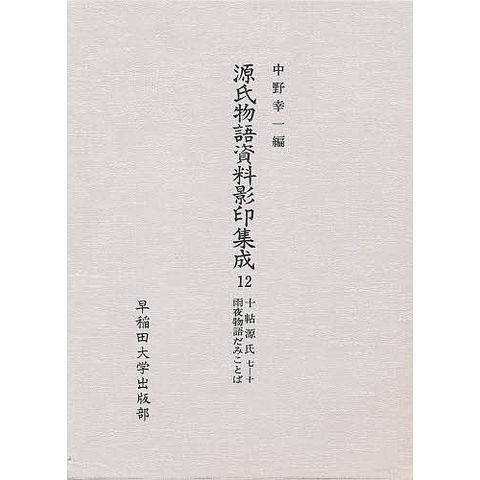 中野幸一編
源氏物語資料影印集成
12
十帖源氏 七―十
雨夜物語だみことば
早稲田大学出版部